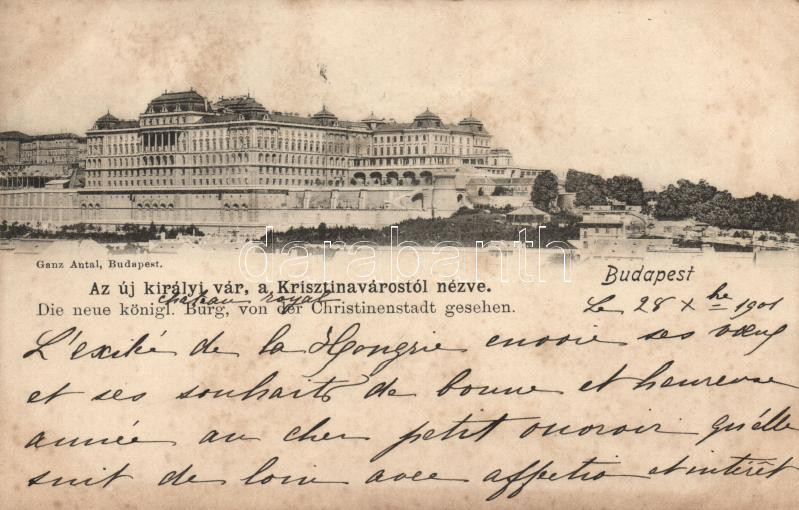 darabanth.com
Ganz Antal, Budapest.
Az új királyi vár, a Krisztinavárostól nézve.
Budapest
château royal
Die neue königl. Burg, von der Christinenstadt gesehen.
Le 28 Xbre 1901
L'exilé de la Hongrie envoie ses vœux
et ses souhaits de bonne et heureuse
année au cher petit qu'elle
suit de loin avec affectio et intérêt